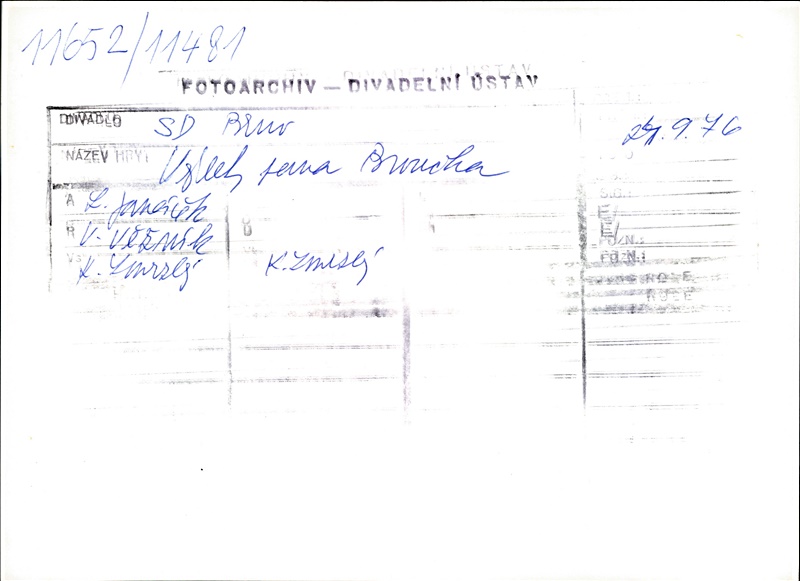 11652/11481
FOTOARCHIV — DIVADELNÍ ÚSTAV
DIVADLO SD Brno 21.9.76
NÁZEV HRY: Výlet pana Broučka
A L. Janáček
R V. Věžník
K. Zmrzlý K. Zmrzlý
FO.N.:
ROLE
ROLE